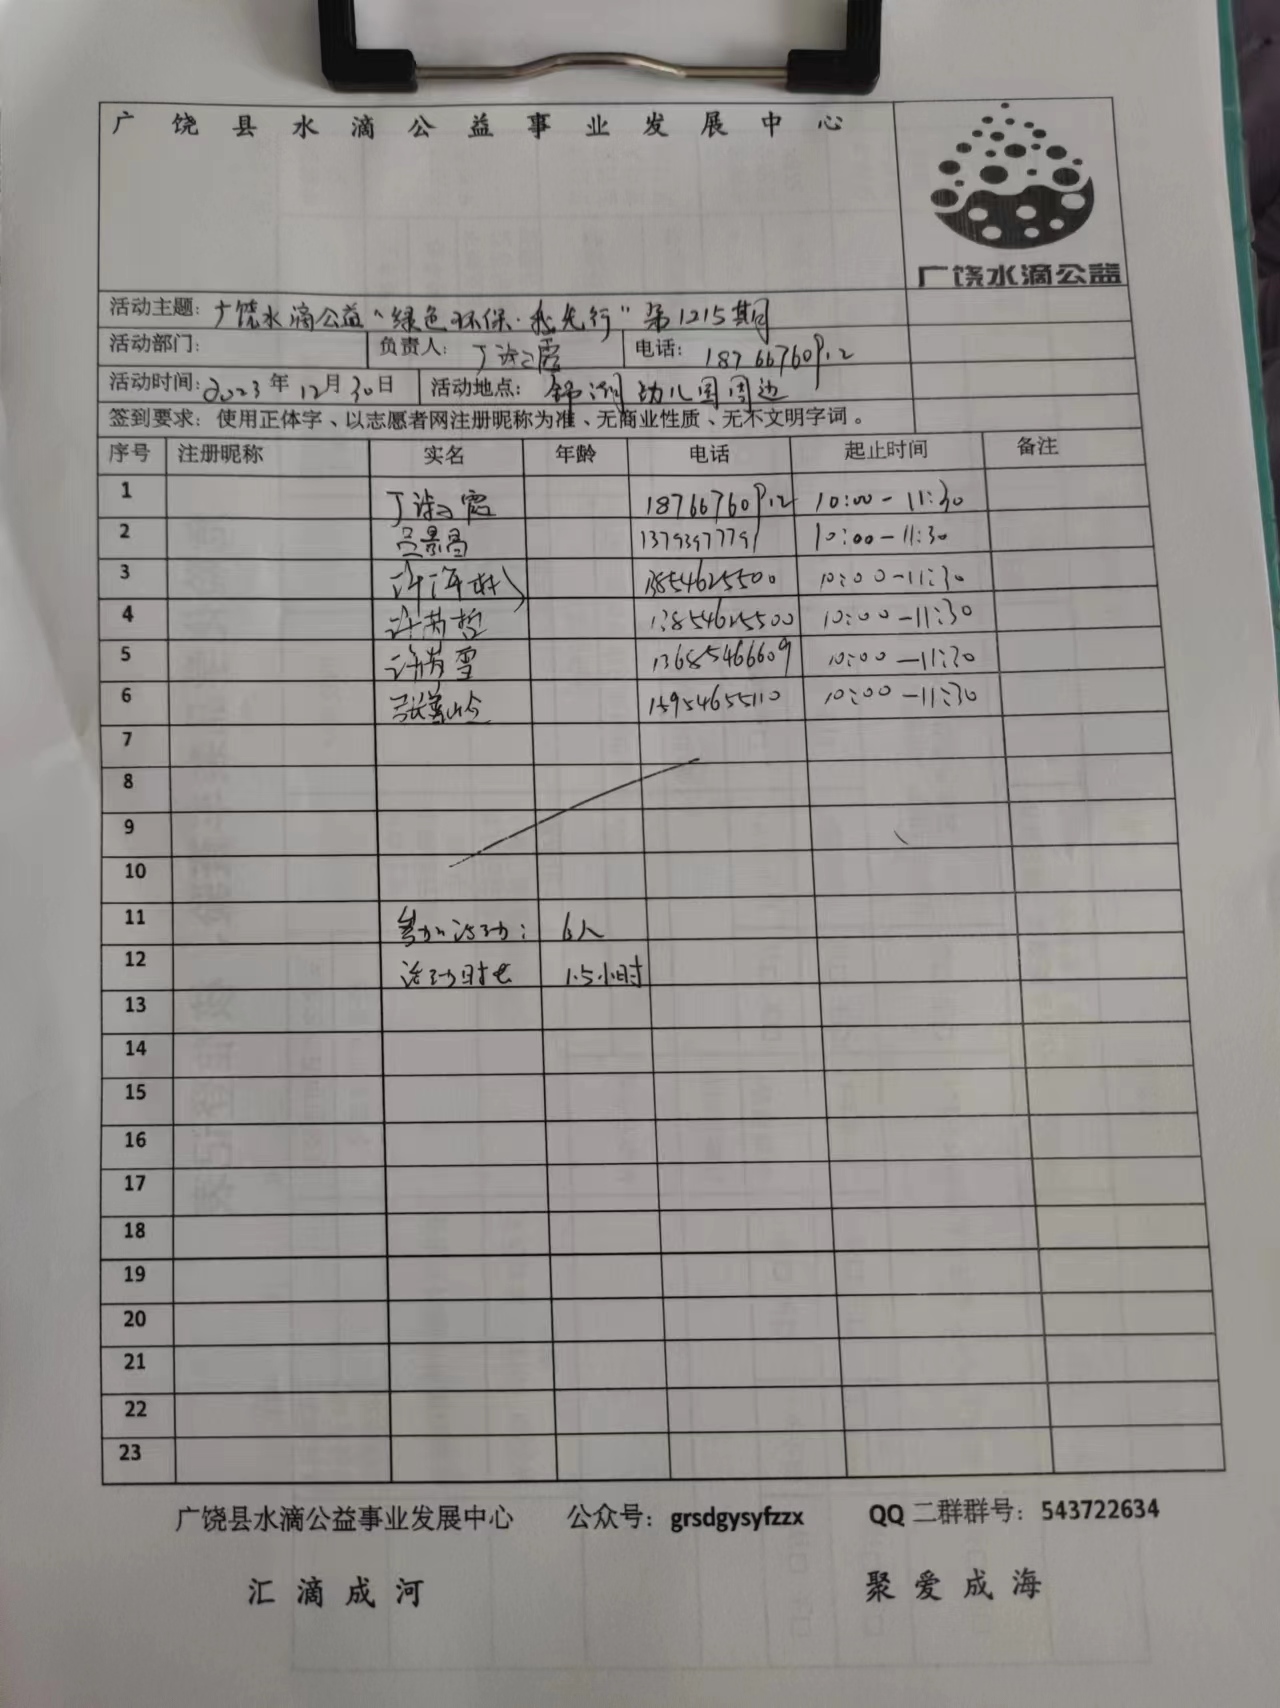 广饶县水滴公益事业发展中心
广饶水滴公益
活动主题：广饶水滴公益“绿色环保·我先行”第1215期
活动部门： 负责人：丁淑霞 电话：18766760912
活动时间：2023年12月30日 活动地点：锦湖幼儿园周边
签到要求：使用正体字、以志愿者网注册昵称为准、无商业性质、无不文明字词。
序号 注册昵称 实名 年龄 电话 起止时间 备注
1 丁淑霞 18766760912 10:00-11:30
2 吕景昌 13793977791 10:00-11:30
3 许海 13854625500 10:00-11:30
4 许芮哲 13854625500 10:00-11:30
5 许芮雪 13685466609 10:00-11:30
6 张 15954655110 10:00-11:30
7
8
9
10
11 参加活动： 6人
12 活动时长 1.5小时
13
14
15
16
17
18
19
20
21
22
23
广饶县水滴公益事业发展中心 公众号：grsdgysyfzzx QQ二群群号：543722634
汇滴成河 聚爱成海